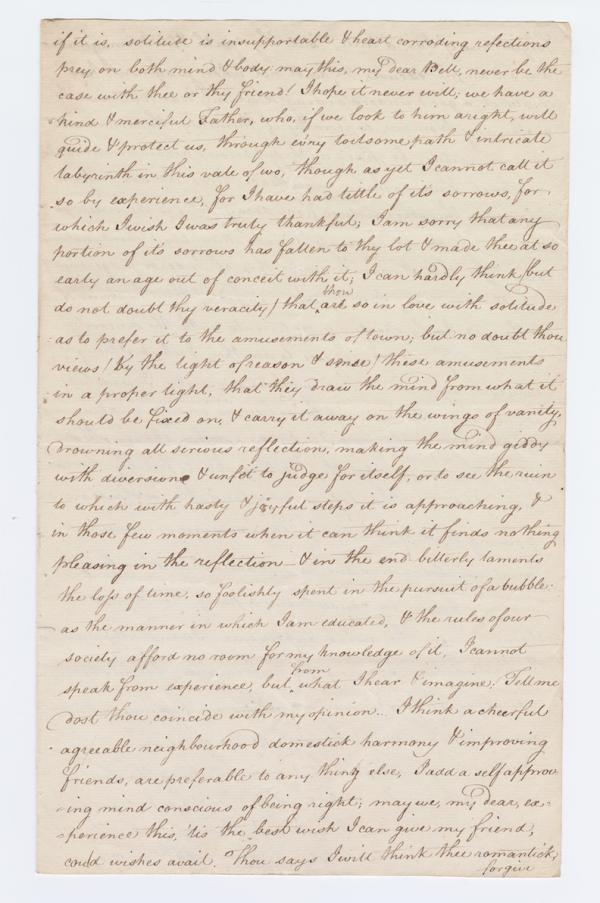 if it is, solitude is insupportable & heart corroding refections
prey on both mind & body: may this, my dear Bell, never be the
case with thee or thy friend! I hope it never will; we have a
kind & merciful Father, who, if we look to him aright, will
guide & protect us, through ev'ry toilsome path & intricate
labyrinth in this vale of wo, though as yet I cannot call it
so by experience, for I have had little of it's sorrows, for
which I wish I was truly thankful; I am sorry that any
portion of it's sorrows has fallen to thy lot & made thee at so
early an age out of conceit with it; I can hardly think (but
do not doubt thy veracity) that thou art so in love with solitude
as to prefer it to the amusements of town; but no doubt thou
views (by the light of reason & sense) these amusements
in a proper light, that they draw the mind from what it
should be fixed on, & carry it away on the wings of vanity,
drowning all serious reflection, making the mind giddy
with diversion & unfit to judge for itself, or to see the ruin
to which with hasty & joyful steps it is approaching, &
in those few moments when it can think it finds nothing
pleasing in the reflection — & in the end bitterly laments
the loss of time, so foolishly spent in the pursuit of a bubble:
as the manner in which I am educated, & the rules of our
society afford no room for my knowledge of it, I cannot
speak from experience, but from what I hear & imagine. Tell me
dost thou coincide with my opinion... I think a cheerful
agreeable neighbourhood domestick harmony & improving
friends, are preferable to any thing else, I add a self approv-
-ing mind conscious of being right; may we, my dear, ex-
-perience this, 'tis the best wish I can give my friend,
could wishes avail. Thou says I will think thee romantick,
forgive